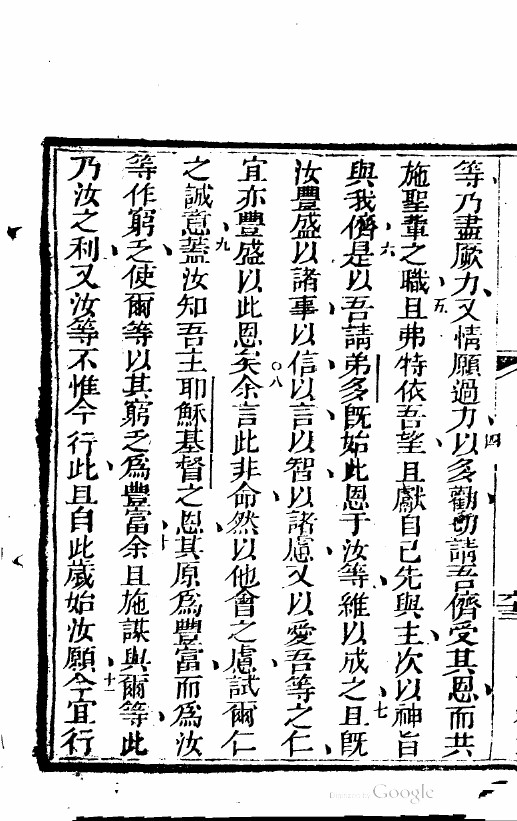 等乃盡厥力又情願過力以多勸勸請吾儕受其恩而共
四
五
施聖輩之職且弗特依吾望且獻自己先與主次以神旨
六
與我儕是以吾請弟多既始此恩于汝等維以成之且既
七
汝豐盛以諸事以信以言以智以諸慮又以愛吾等之仁
○八
宜亦豐盛以此恩矣余言此非命然以他會之慮試爾仁
九
之誠意蓋汝知吾主耶穌基督之恩其原為豐富而為汝
十
等作窮乏使爾等以其窮乏為豐富余且施謀與爾等此
十一
乃汝之利又汝等不惟今行此且自此歲始汝願今宜行
Digitized by Google